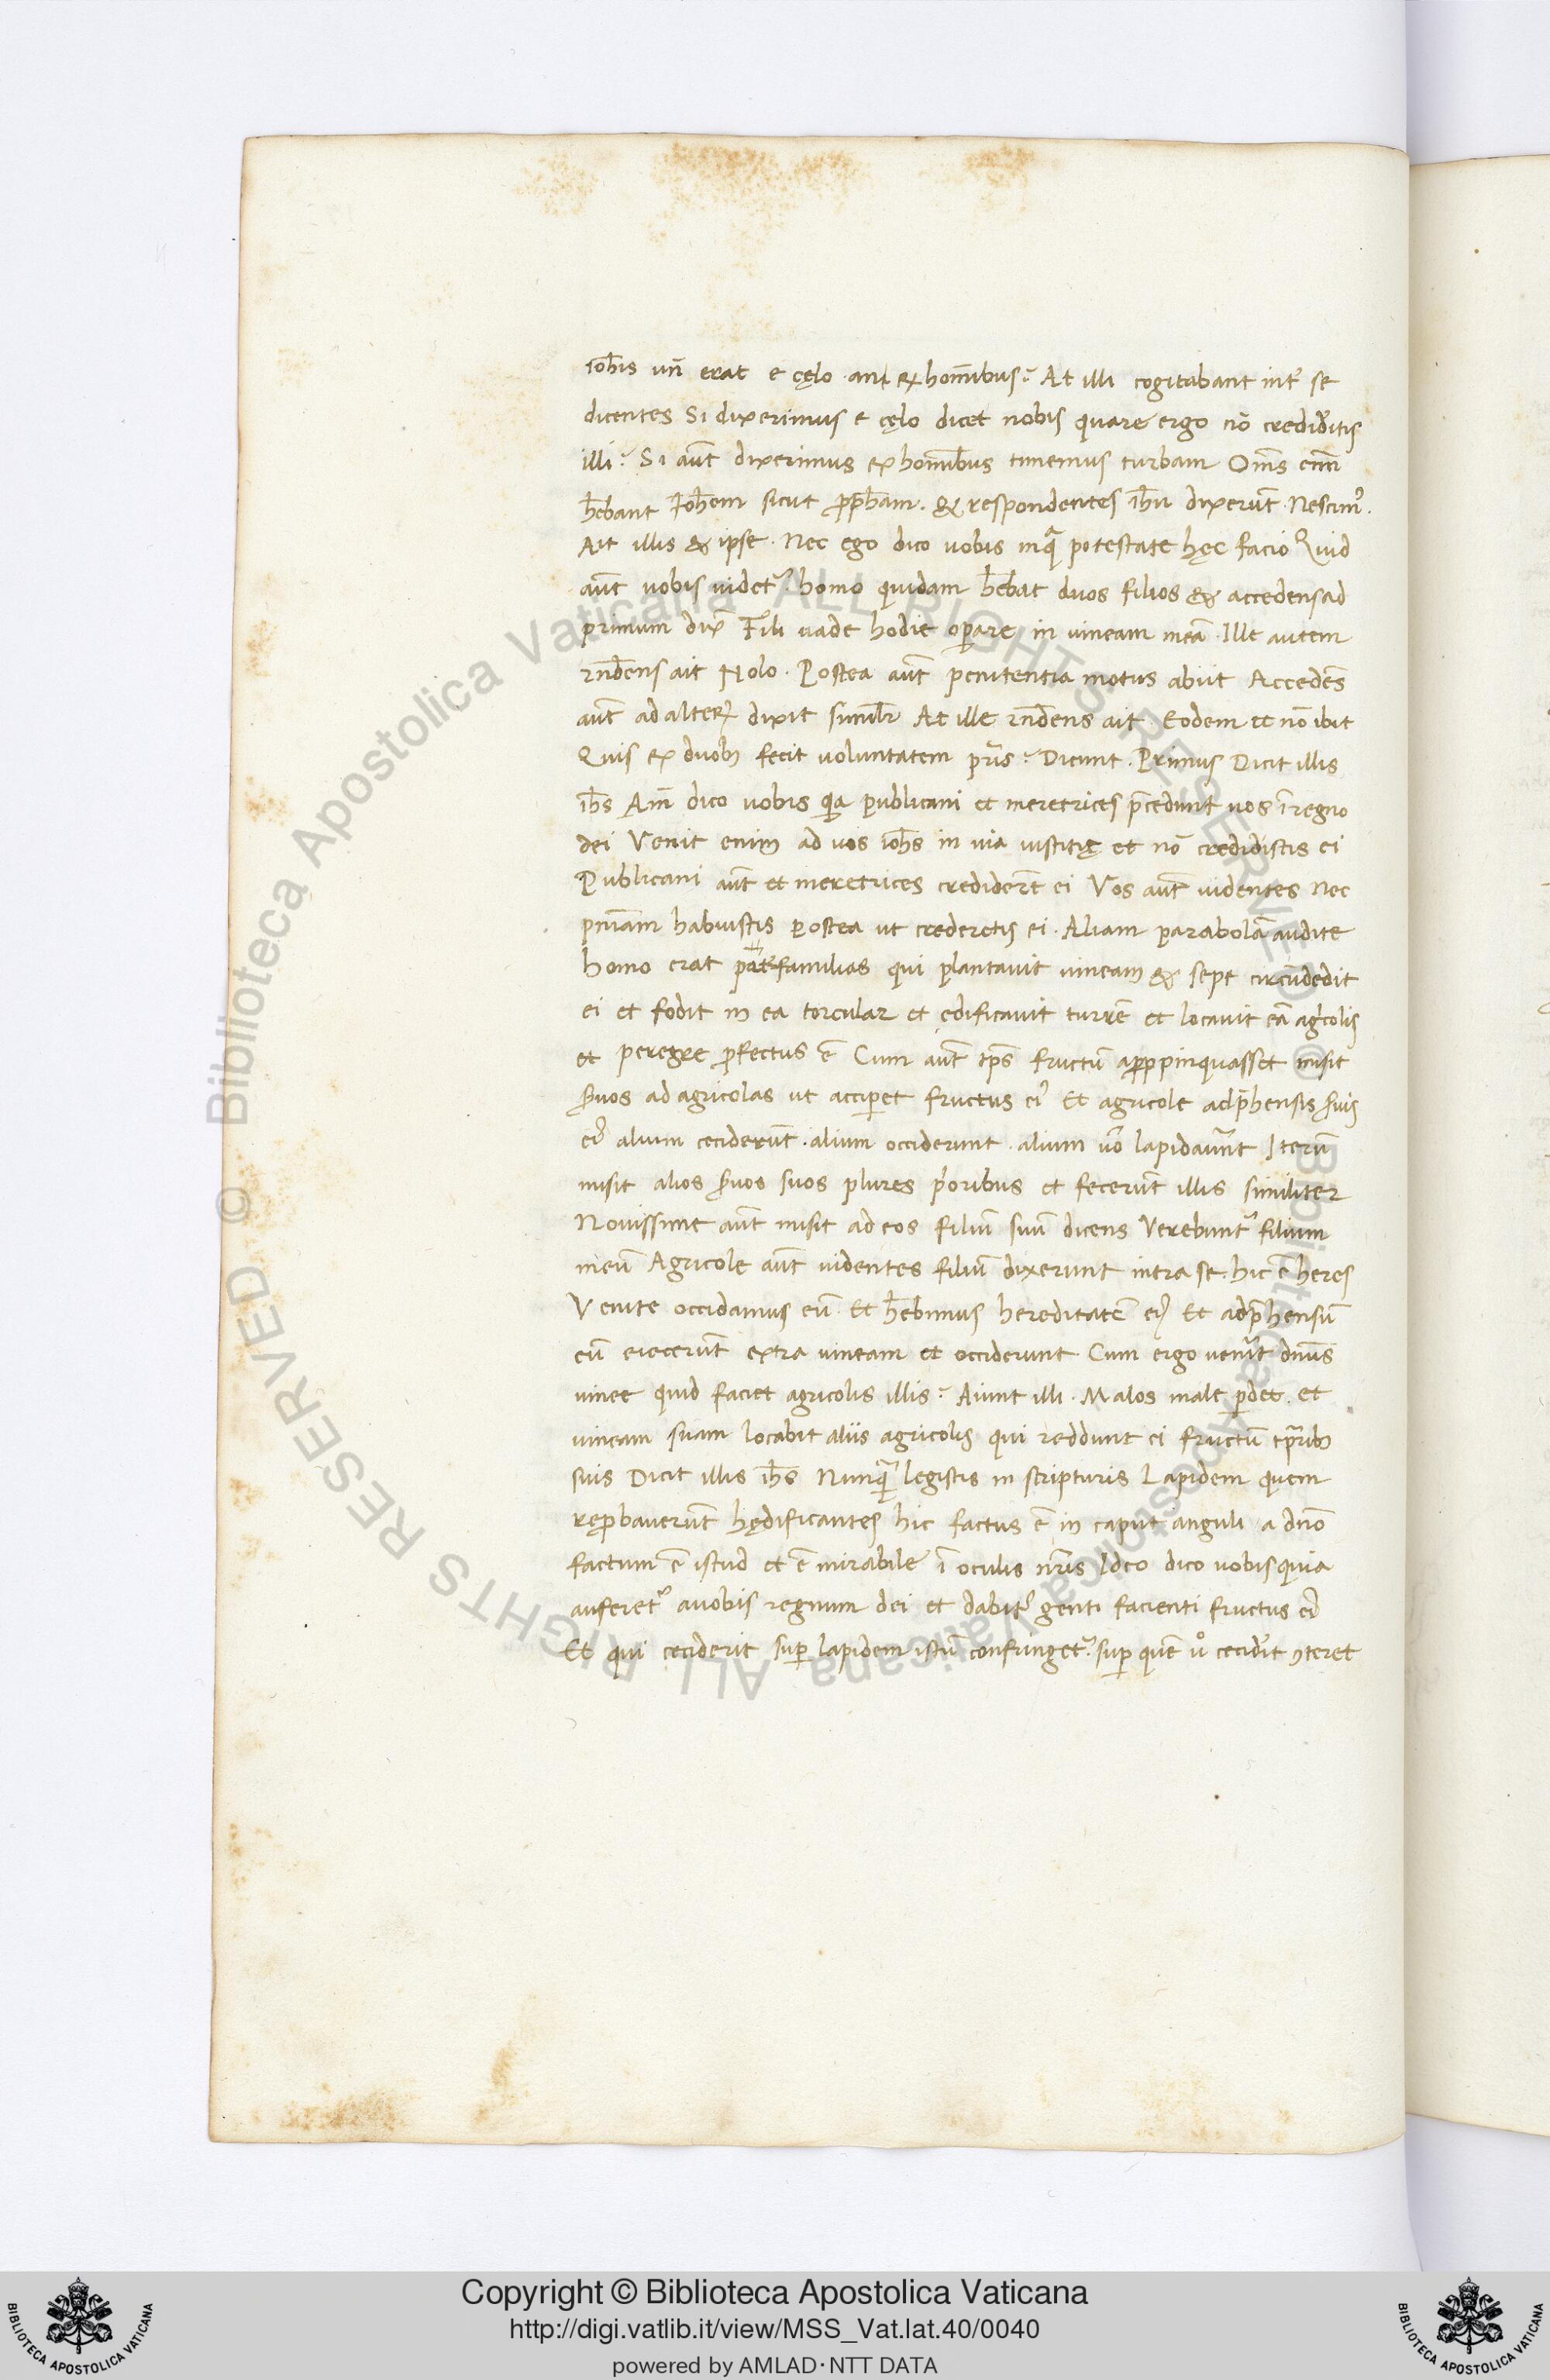 ioħis vñ erat e cęlo aut ex hom̄ibus? At illi cogitabant int̾ se
dicentes Si dixerimus e cęlo dicet nobis quare ergo nō credid̾itis
illi? Si aūt dixerimus ex hom̄ibus timemus turbam Om̄s em̄
ħebant Ioħem sicut ꝓpħam. & respondentes iħu dixerūt Nescim᾽.
Ait illis & ipse. Nec ego dico uobis in qᷓ potestate hęc facio Quid
aūt uobis uidet᾽? homo quidam ħebat duos filios & accedens ad
primum dix̄ Fili uade hodie oꝑare in uineam meā. Ille autem
rñdens ait Nolo. Postea aūt penitentia motus abiit Accedēs
aūt ad alterꝫ dixit simil̄r At ille rñdens ait. Eodem et nō ibit
Quis ex duobꝫ fecit uoluntatem pr̄is? Dicunt. Primus Dicit illis
iħs Am̄ dico uobis qᷓa publicani et meretrices p̄cedunt uos ī regno
dei Venit enim ad uos ioħs in uia iustitię et nō credidistis ei
Publicani aūt et meretrices crediderūt ei Vos aūt uidentes nec
pn̄iam habuistis postea ut crederetis ei. Aliam parabolā audite
homo erat paterfamilias qui plantauit uineam & sepe circūdedit
ei et fodit in ea torcular et edificauit turrē et locauit eā agͥcolis
et peregre ꝓfectus ē Cum aūt tp̄s fructū apropinquasset misit
ẜuos ad agricolas ut acciꝑet fructus ei᾽ Et agricole adp̄hensis ẜuis
ei᾽ alium ceciderūt. alium occiderunt. alium ūo lapidauer̄nt Iterū
misit alios ẜuos suos plures pͥoribus et fecerūt illis similiter
Nouissime aūt misit ad eos filiū suū dicens Verebunt᾽ filium
meū Agricole aūt uidentes filiū dixerunt intra se. hic ē heres
Venite occidamus eū Et ħebimus hereditatē ei᾽ Et adp̄hensū
eū eiecerūt extra uineam et occiderunt Cum ergo uen̾it dn̄us
uinee quid faciet agricolis illis? Aiunt illi. Malos male ꝑdet. et
uineam suam locabit aliis agricolis qui reddunt ei fructū tp̄ribꝫ
suis Dicit illis iħs Nunqᷓ legistis in scripturis Lapidem quem
reꝓbauerūt hędificantes hic factus ē in caput anguli a dn̄o
factum ē istud et ē mirabile ī oculis nr̄is Ideo dico uobis quia
auferet᾽ a uobis regnum dei et dabit᾽ genti facienti fructus ei᾽
Et qui ceciderit suꝑ lapidem istū confringet᾽. suꝑ quē uͦ cecid̾it ꝯteret
© Biblioteca Apostolica Vaticana ALL RIGHTS RESERVED
© Biblioteca Apostolica Vaticana ALL RIGHTS RESERVED
Copyright © Biblioteca Apostolica Vaticana
http://digi.vatlib.it/view/MSS_Vat.lat.40/0040
powered by AMLAD·NTT DATA
BIBLIOTECA APOSTOLICA VATICANA
BIBLIOTECA APOSTOLICA VATICANA